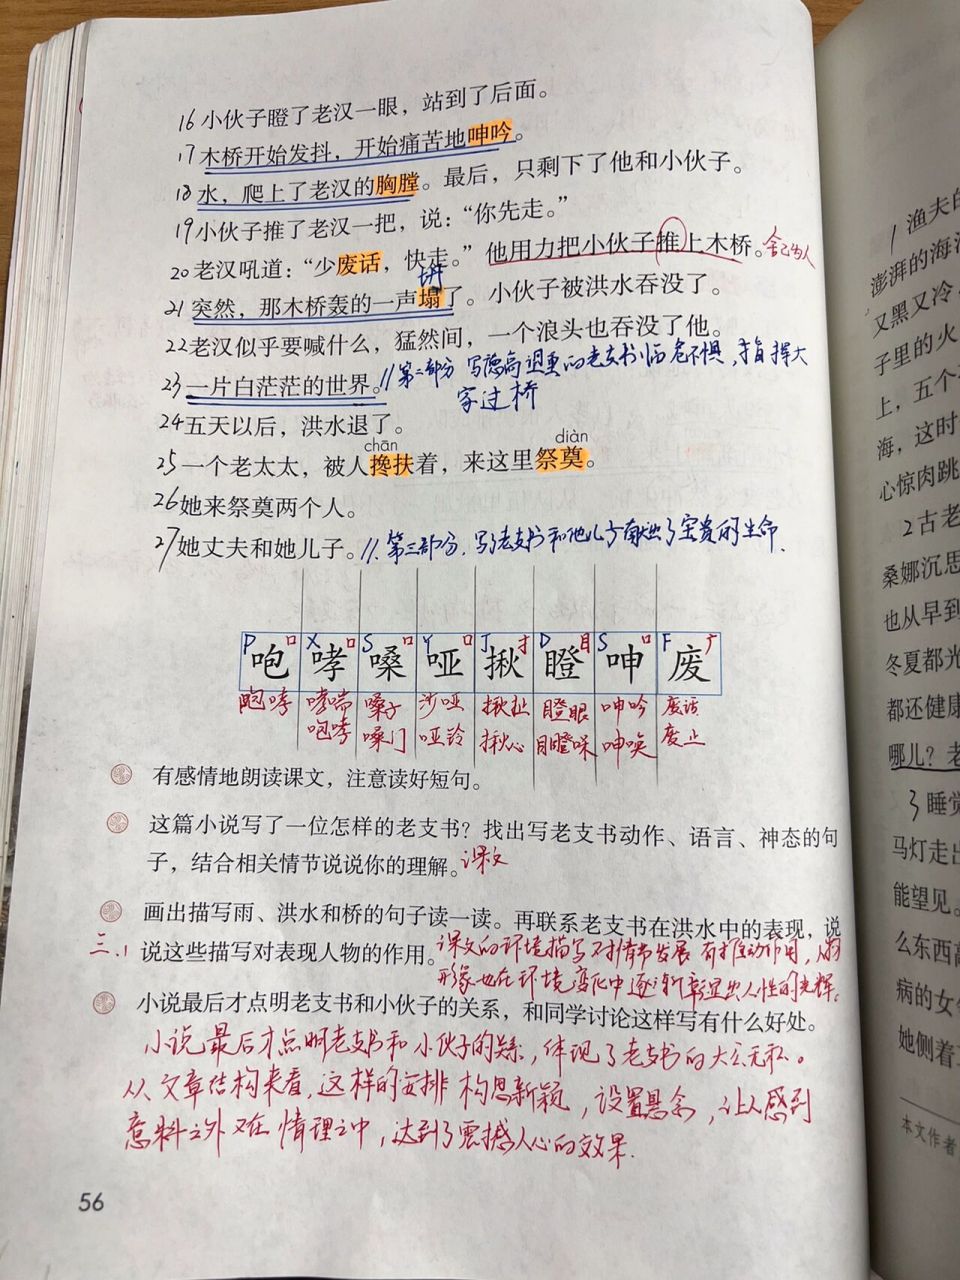 16小伙子瞪了老汉一眼，站到了后面。
17木桥开始发抖，开始痛苦地呻吟。
18水，爬上了老汉的胸膛。最后，只剩下了他和小伙子。
19小伙子推了老汉一把，说：“你先走。”
20老汉吼道：“少废话，快走。”他用力把小伙子推上木桥。舍己为人
21突然，那木桥轰的一声塌了。小伙子被洪水吞没了。
22老汉似乎要喊什么，猛然间，一个浪头也吞没了他。
23一片白茫茫的世界。//第二部分 写德高望重的老支书临危不惧，指挥大
家过桥
24五天以后，洪水退了。
chān diàn
25一个老太太，被人搀扶着，来这里祭奠。
26她来祭奠两个人。
27她丈夫和她儿子。//第三部分，写了老支书和他儿子献出了宝贵的生命.
P口 X口 S口 Y口 J扌 D目 S口 F广
咆 哮 嗓 哑 揪 瞪 呻 废
咆哮 哮喘 嗓子 沙哑 揪扯 瞪眼 呻吟 废话
咆哮 嗓门 哑铃 揪心 呻唤 废止
有感情地朗读课文，注意读好短句。
这篇小说写了一位怎样的老支书？找出写老支书动作、语言、神态的句
子，结合相关情节说说你的理解。课文
画出描写雨、洪水和桥的句子读一读。再联系老支书在洪水中的表现，说
三.1 说这些描写对表现人物的作用。课文的环境描写对情节发展有推动作用，人物
形象也在环境变化中逐渐彰显出人性的光辉。
小说最后才点明老支书和小伙子的关系，和同学讨论这样写有什么好处。
小说最后才点明老支书和小伙子的关系，体现了老支书的大公无私。
从文章结构来看，这样的安排构思新颖，设置悬念，让人感到
意料之外又在情理之中，达到了震撼人心的效果.
56
1渔夫的
澎湃的海
又黑又冷
子里的火
上，五个
海，这时
心惊肉跳
2古老
桑娜沉思
也从早到
冬夏都光
都还健康
哪儿？老
3睡觉
马灯走出
能望见。
么东西
病的女
她侧着
本文作者